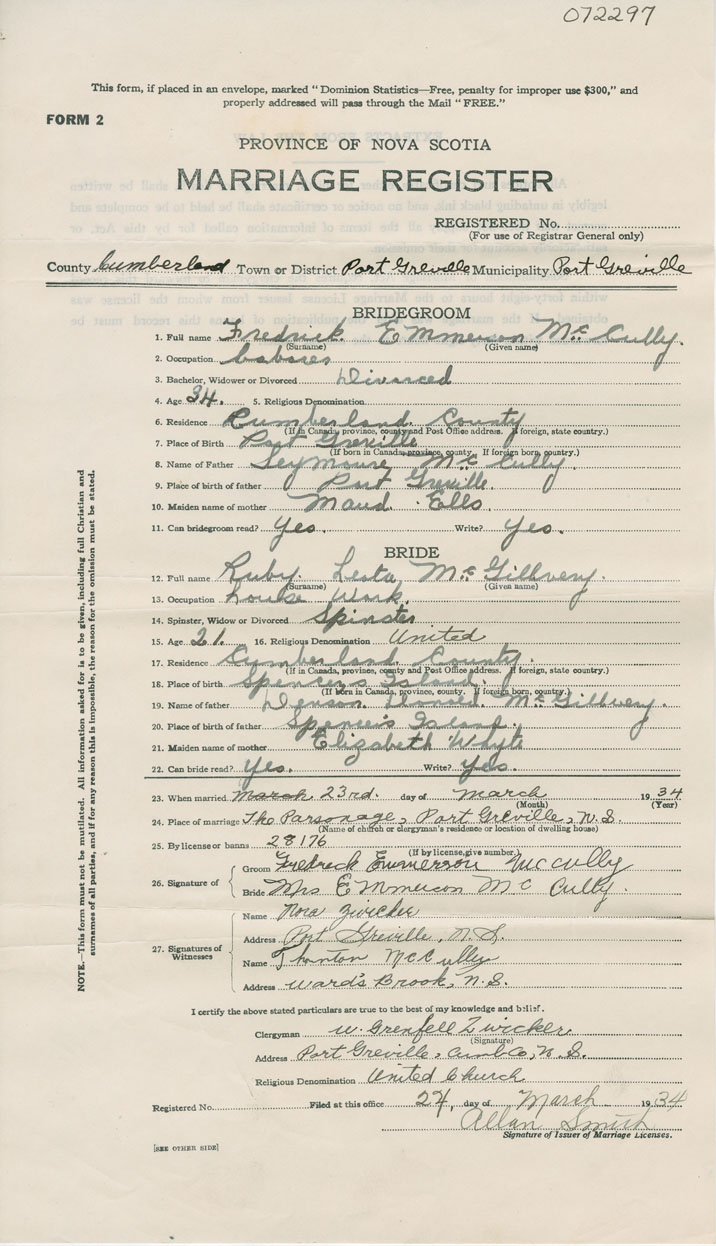 072297
This form, if placed in an envelope, marked "Dominion Statistics—Free, penalty for improper use $300," and
properly addressed will pass through the Mail "FREE."
FORM 2
PROVINCE OF NOVA SCOTIA
MARRIAGE REGISTER
REGISTERED No.
(For use of Registrar General only)
County Cumberland Town or District Port Greville Municipality Port Greville
BRIDEGROOM
1. Full name Fredrick Emmerson McCully.
(Surname) (Given name)
2. Occupation Labarer
3. Bachelor, Widower or Divorced Divorced
4. Age 34. 5. Religious Denomination
6. Residence Cumberland County
(If in Canada, province, county and Post Office address. If foreign, state country.)
7. Place of Birth Port Greville
(If born in Canada, province, county. If foreign born, country.)
8. Name of Father Seymoure McCully.
9. Place of birth of father Port Greville.
10. Maiden name of mother Maud Ells
11. Can bridegroom read? Yes. Write? Yes.
BRIDE
12. Full name Ruby Leota McGillvery.
(Surname) (Given name)
13. Occupation house Work.
14. Spinster, Widow or Divorced Spinster
15. Age 21. 16. Religious Denomination United
17. Residence Cumberland County.
(If in Canada, province, county and Post Office address. If foreign, state country.)
18. Place of birth Spencers Island.
(If born in Canada, province, county. If foreign born, country.)
19. Name of father Denson McGillvery.
20. Place of birth of father Spencers Island.
21. Maiden name of mother Elizabeth Whyte
22. Can bride read? Yes. Write? Yes.
23. When married March 23rd. day of March 1934
(Month) (Year)
24. Place of marriage The Parsonage, Port Greville, N.S.
(Name of church or clergyman's residence or location of dwelling house)
25. By license or banns 28176
(If by license, give number.)
26. Signature of
Groom Fredrick Emmerson McCully
Bride Mrs Emmerson McCully.
27. Signatures of Witnesses
Name Nora Zwicker
Address Port Greville, N.S.
Name Thonton McCully
Address Ward's Brook, N.S.
I certify the above stated particulars are true to the best of my knowledge and belief.
Clergyman W. Grenfell Zwicker
(Signature)
Address Port Greville, Cumb Co, N.S.
Religious Denomination United Church
Registered No. Filed at this office 24, day of March 1934
Allan Smith
Signature of Issuer of Marriage Licenses.
[SEE OTHER SIDE]
NOTE.—This form must not be mutilated. All information asked for is to be given, including full Christian and
surnames of all parties, and if for any reason this is impossible, the reason for the omission must be stated.